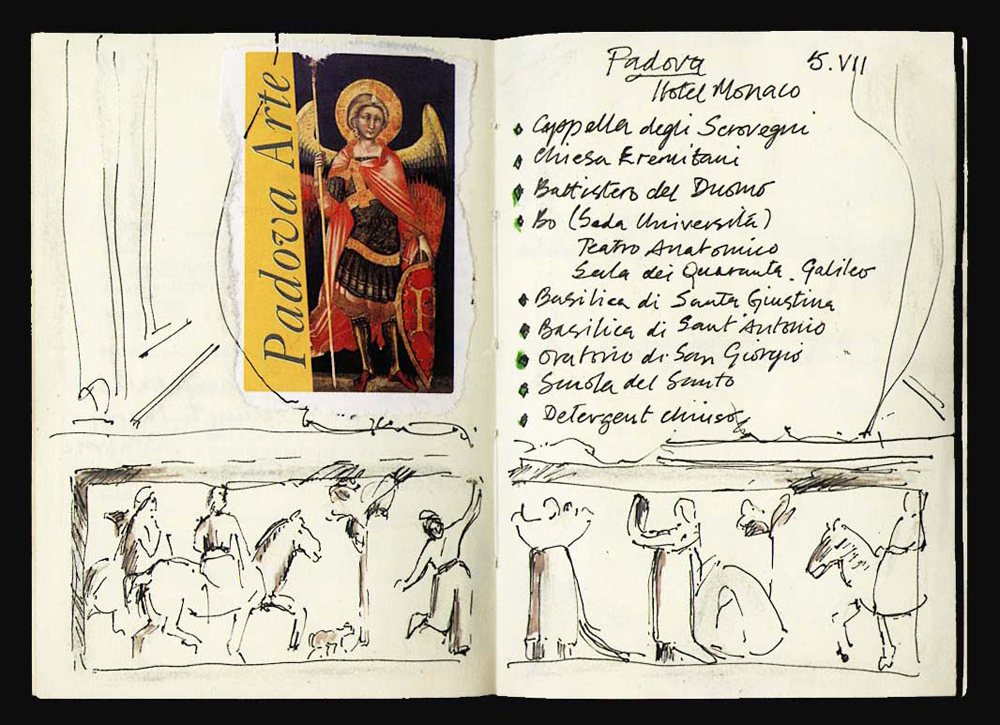 Padova Arte
Padova 5.VII
Hotel Monaco
Cappella degli Scrovegni
Chiesa Eremitani
Battistero del Duomo
Bo (Seda Università)
Teatro Anatomico
Sala dei Quaranta. Galileo
Basilica di Santa Giustina
Basilica di Sant'Antonio
Oratorio di San Giorgio
Scuola del Santo
Detergent chiuso